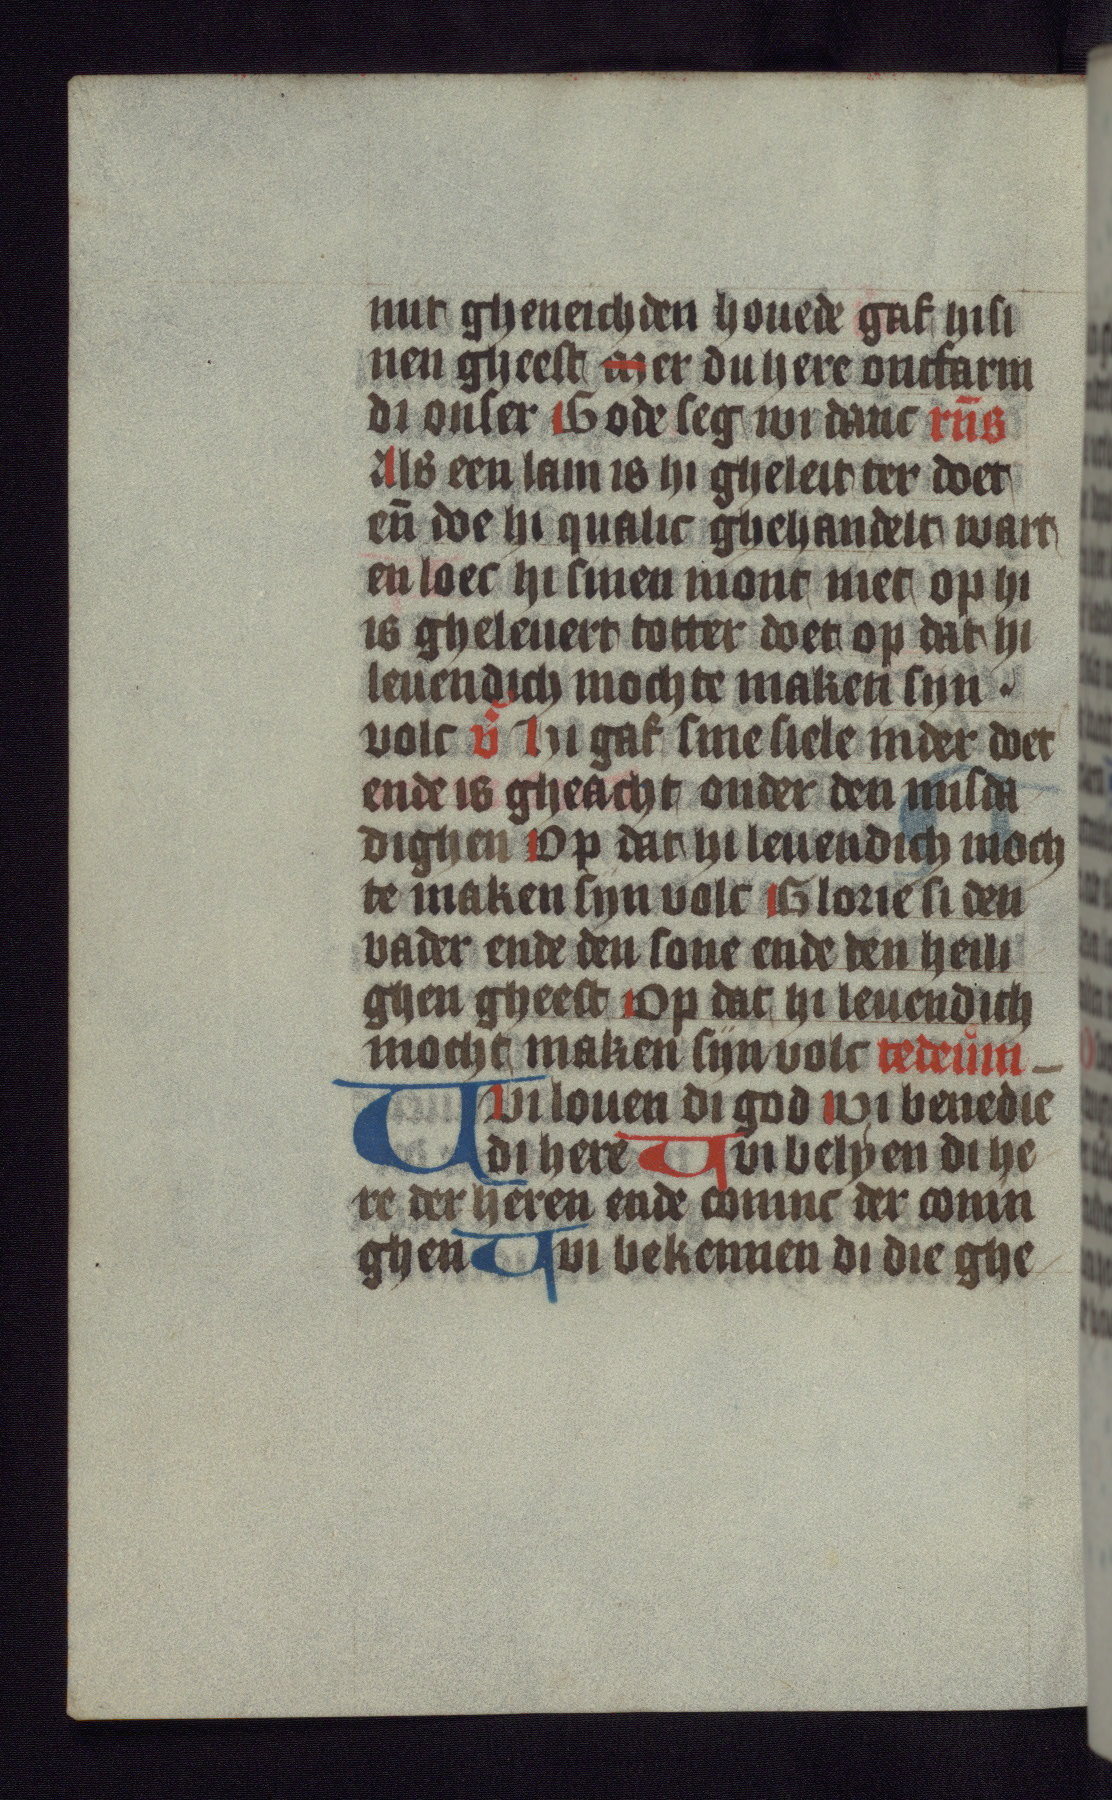 mit gheneichden houede gaf hi si
nen gheest Mer du here ontfarm
di onser Gode seg wi danc rn̄s
Als een lam is hi gheleit ter doet
en̄ doe hi qualic ghehandelt wart
en loec hi sinen mont niet op hi
is gheleuert totter doet op dat hi
leuendich mochte maken sijn
volc v̄ Hi gaf sine siele in der doet
ende is gheacht onder den misda
dighen Op dat hi leuendich moch
te maken sijn volc Glorie si den
vader ende den sone ende den heili
ghen gheest Op dat hi leuendich
mocht maken sijn volc te deum
Wi louen di god Wi benedie
di here Wi belyen di he
re der heren ende coninc der conin
ghen Wi bekennen di die ghe